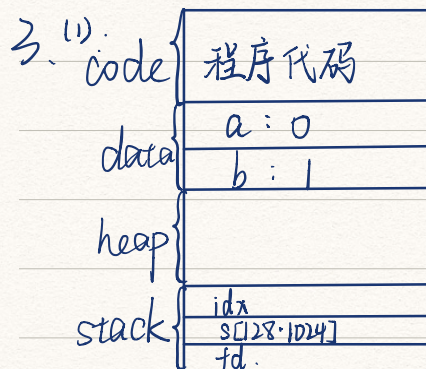 3、(1).
code 程序代码
data a : 0
b : 1
heap
stack idx
s[128·1024]
fd.